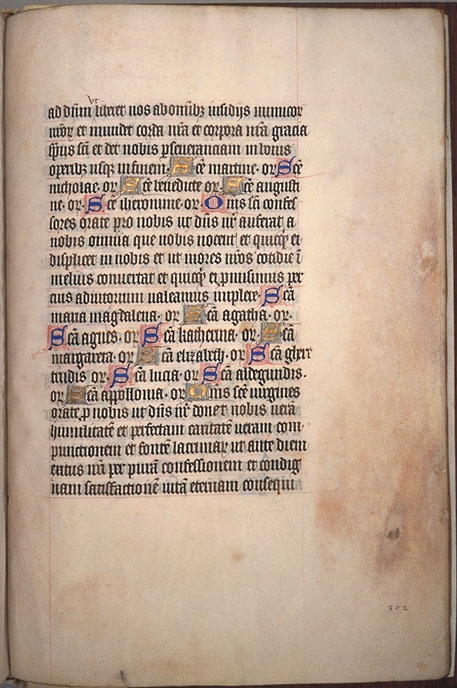 ut
ad dn̄m liberet nos ab omībꝫ insidijs inimicoꝝ
nr̄oꝝ et mundet corda nr̄a et corpora nr̄a gracia
sp̄us sc̄i et det nobis ꝑseuerantiam in bonis
operibꝫ usqꝫ in finem. Sc̄e martine. or. Sc̄e
nicholae. or. Sc̄e benedicte or. Sc̄e augusti
ne. or. Sc̄e iheronime. or. Om̄s sc̄i confes
sores orate pro nobis ut dn̄s nr̄ auferat a
nobis omnia que nobis nocent et quicqꝫ ei
displicet in nobis et ut mores nr̄os cotidie ī
melius conuertat et quicqꝫ ei ꝓmisimus per
eius adiutorium ualeamus implere. Sc̄a
maria magdalena. or. Sc̄a agatha. or.
Sc̄a agnes. or. Sc̄a katherina. or. Sc̄a
margareta. or. Sc̄a elizabeth. or. Sc̄a gher
trudis. or. Sc̄a lucia. or. Sc̄a aldegundis.
or. Sc̄a appollonia. or. Om̄s sc̄e uirgines
orate ꝓ nobis ut dn̄s nr̄ donet nobis uerā
humilitatē et perfectam caritatē ueram com
punctionem et fontē lacrimaꝝ ut ante diem
exitus nr̄i per purā confessionem et condig
nam satisfactionē uitā eternam consequi
302